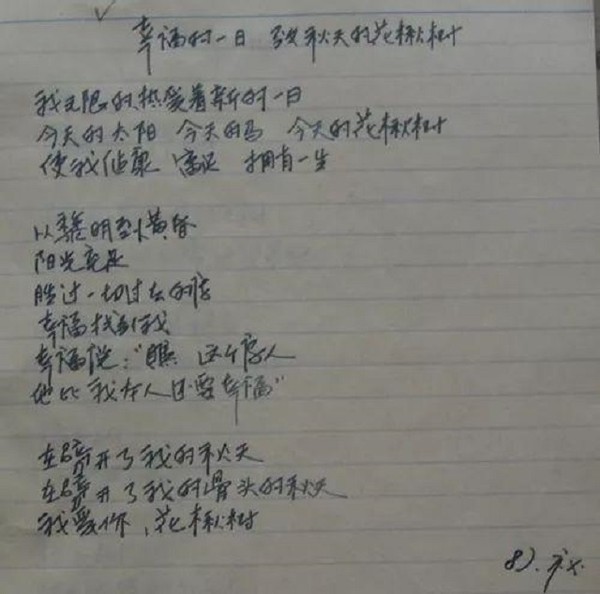 幸福的一日 致秋天的花楸树
我无限的热爱着新的一日
今天的太阳 今天的马 今天的花楸树
使我健康 富足 拥有一生
从黎明到黄昏
阳光充足
胜过一切过去的诗
幸福找到我
幸福说:"瞧 这个诗人
他比我本人还要幸福"
在劈开了我的秋天
在劈开了我的骨头的秋天
我爱你,花楸树
87.